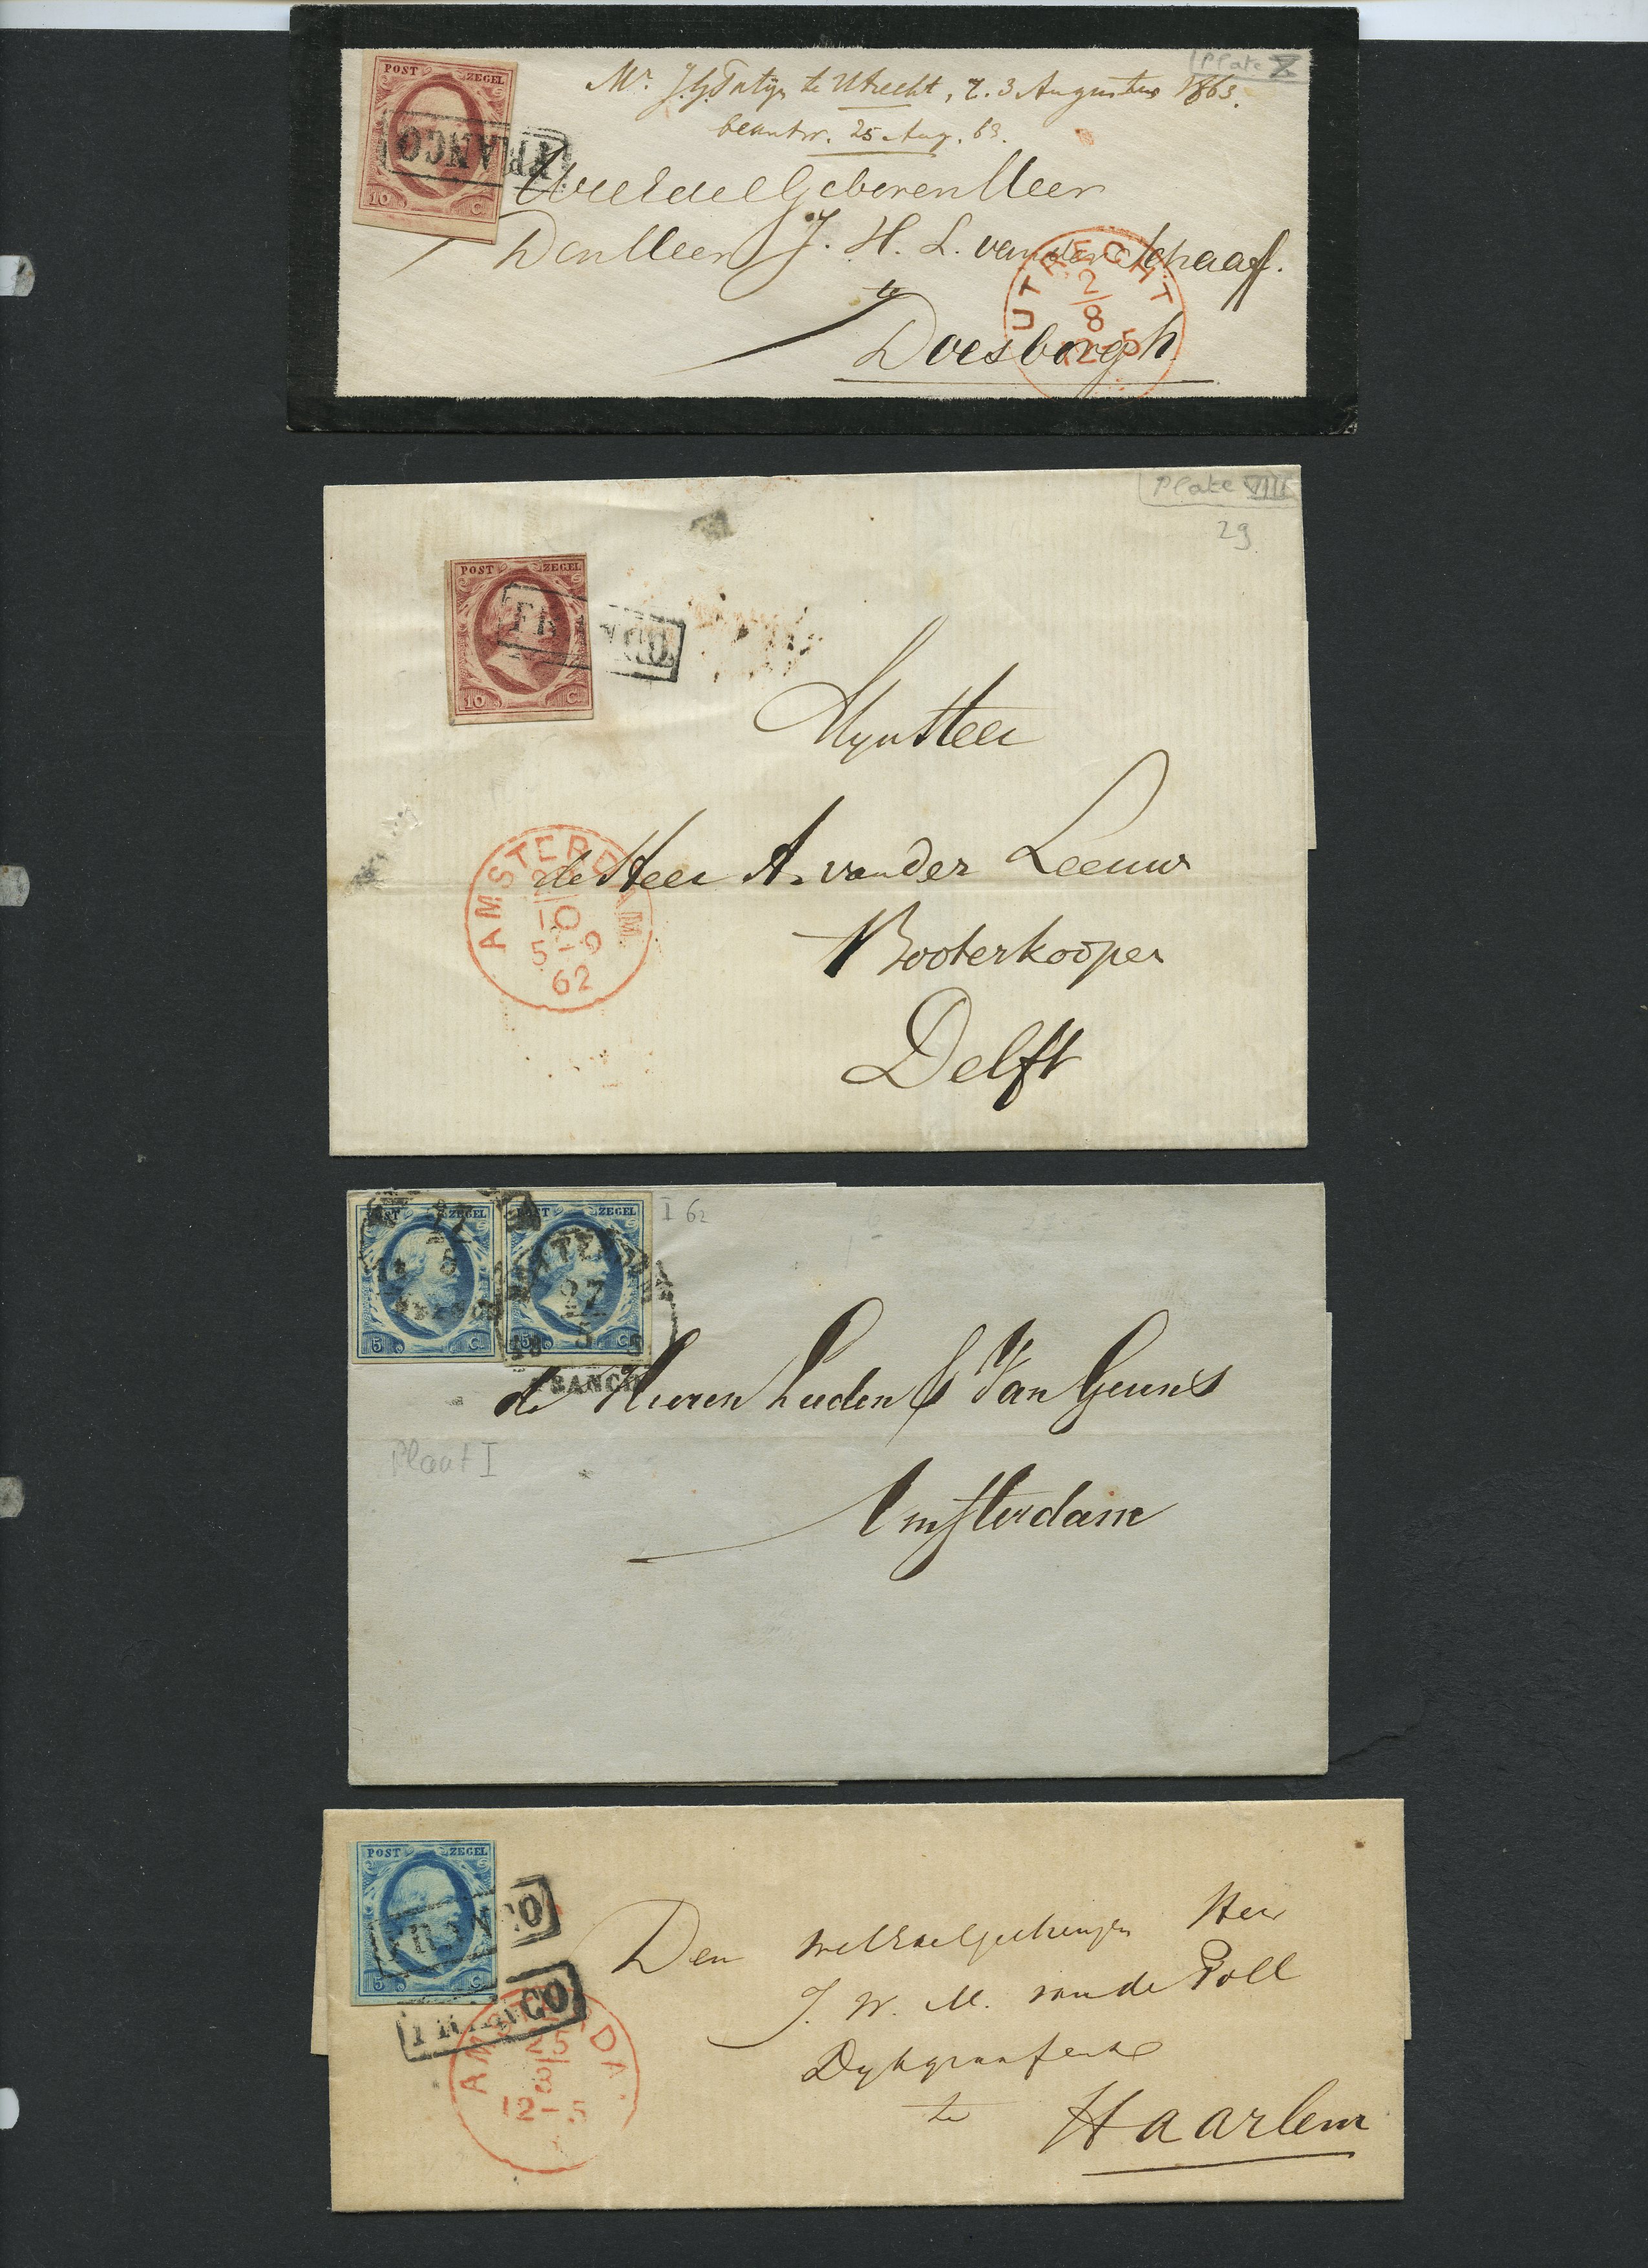 POST ZEGEL
10 C
FRANCO
Plate X
Mr. J. G. Patijn te Utrecht, 2. 3 Augustus 1863.
beantw. 25 Aug. 63.
WelEdelGeborenHeer
Den Heer J. H. L. van der Schaaff.
te
Doesborgh
UTRECHT
2/8
Plate VIII
29
POST ZEGEL
10 C
FRANCO
MynHeer
de Heer A. van der Leeuw
Booterkooper
Delft
AMSTERDAM
2
10
5-9
62
POST ZEGEL
5 C
POST ZEGEL
5 C
I 62
27
5
FRANCO
27
5
18 5
FRANCO
de Heeren Luden & Van Geuns
Plaat I
Amsterdam
POST ZEGEL
5 C
FRANCO
FRANCO
AMSTERDA
25
8
12-5
Den Heer
J. W. M. van de Poll
Dykgraaf
te Haarlem